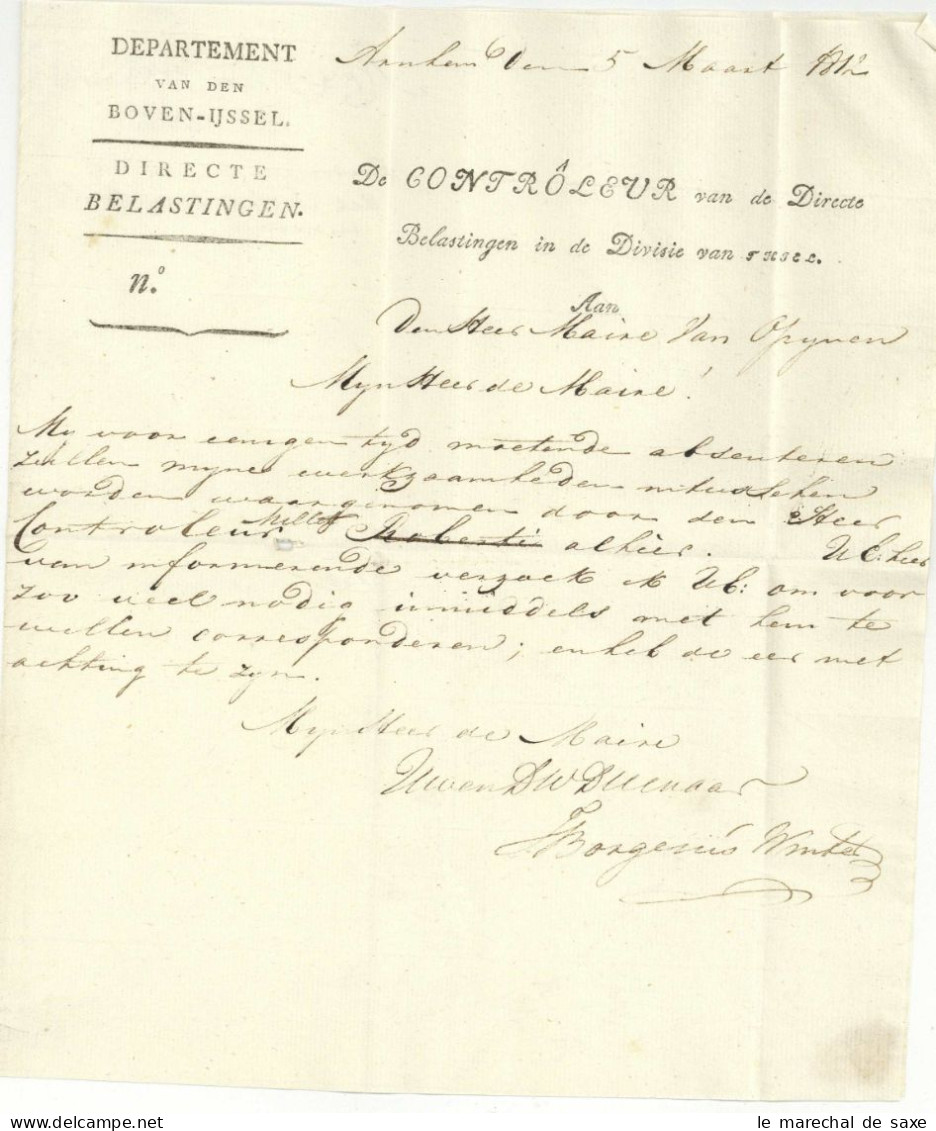 DEPARTEMENT
VAN DEN
BOVEN-IJSSEL.
DIRECTE
BELASTINGEN.
n.o
Arnhem den 5 Maart 1812
De CONTRÔLEUR van de Directe
Belastingen in de Divisie van THIEL.
Aan
Den Heer Maire Van Opijnen
Myn Heer de Maire!
My voor eenigen tyd moetende absenteren
zullen myne werkzaamheden intusschen
worden waargenomen door den Heer
Controleur Roberti alhier. UE: hier
van informerende verzoek ik UE: om voor
zoo veel nodig inmiddels met hem te
willen corresponderen; en heb de eer met
achting te zyn.
Myn Heer de Maire
UwEn DW Dienaar
Borgesius
le marechal de saxe